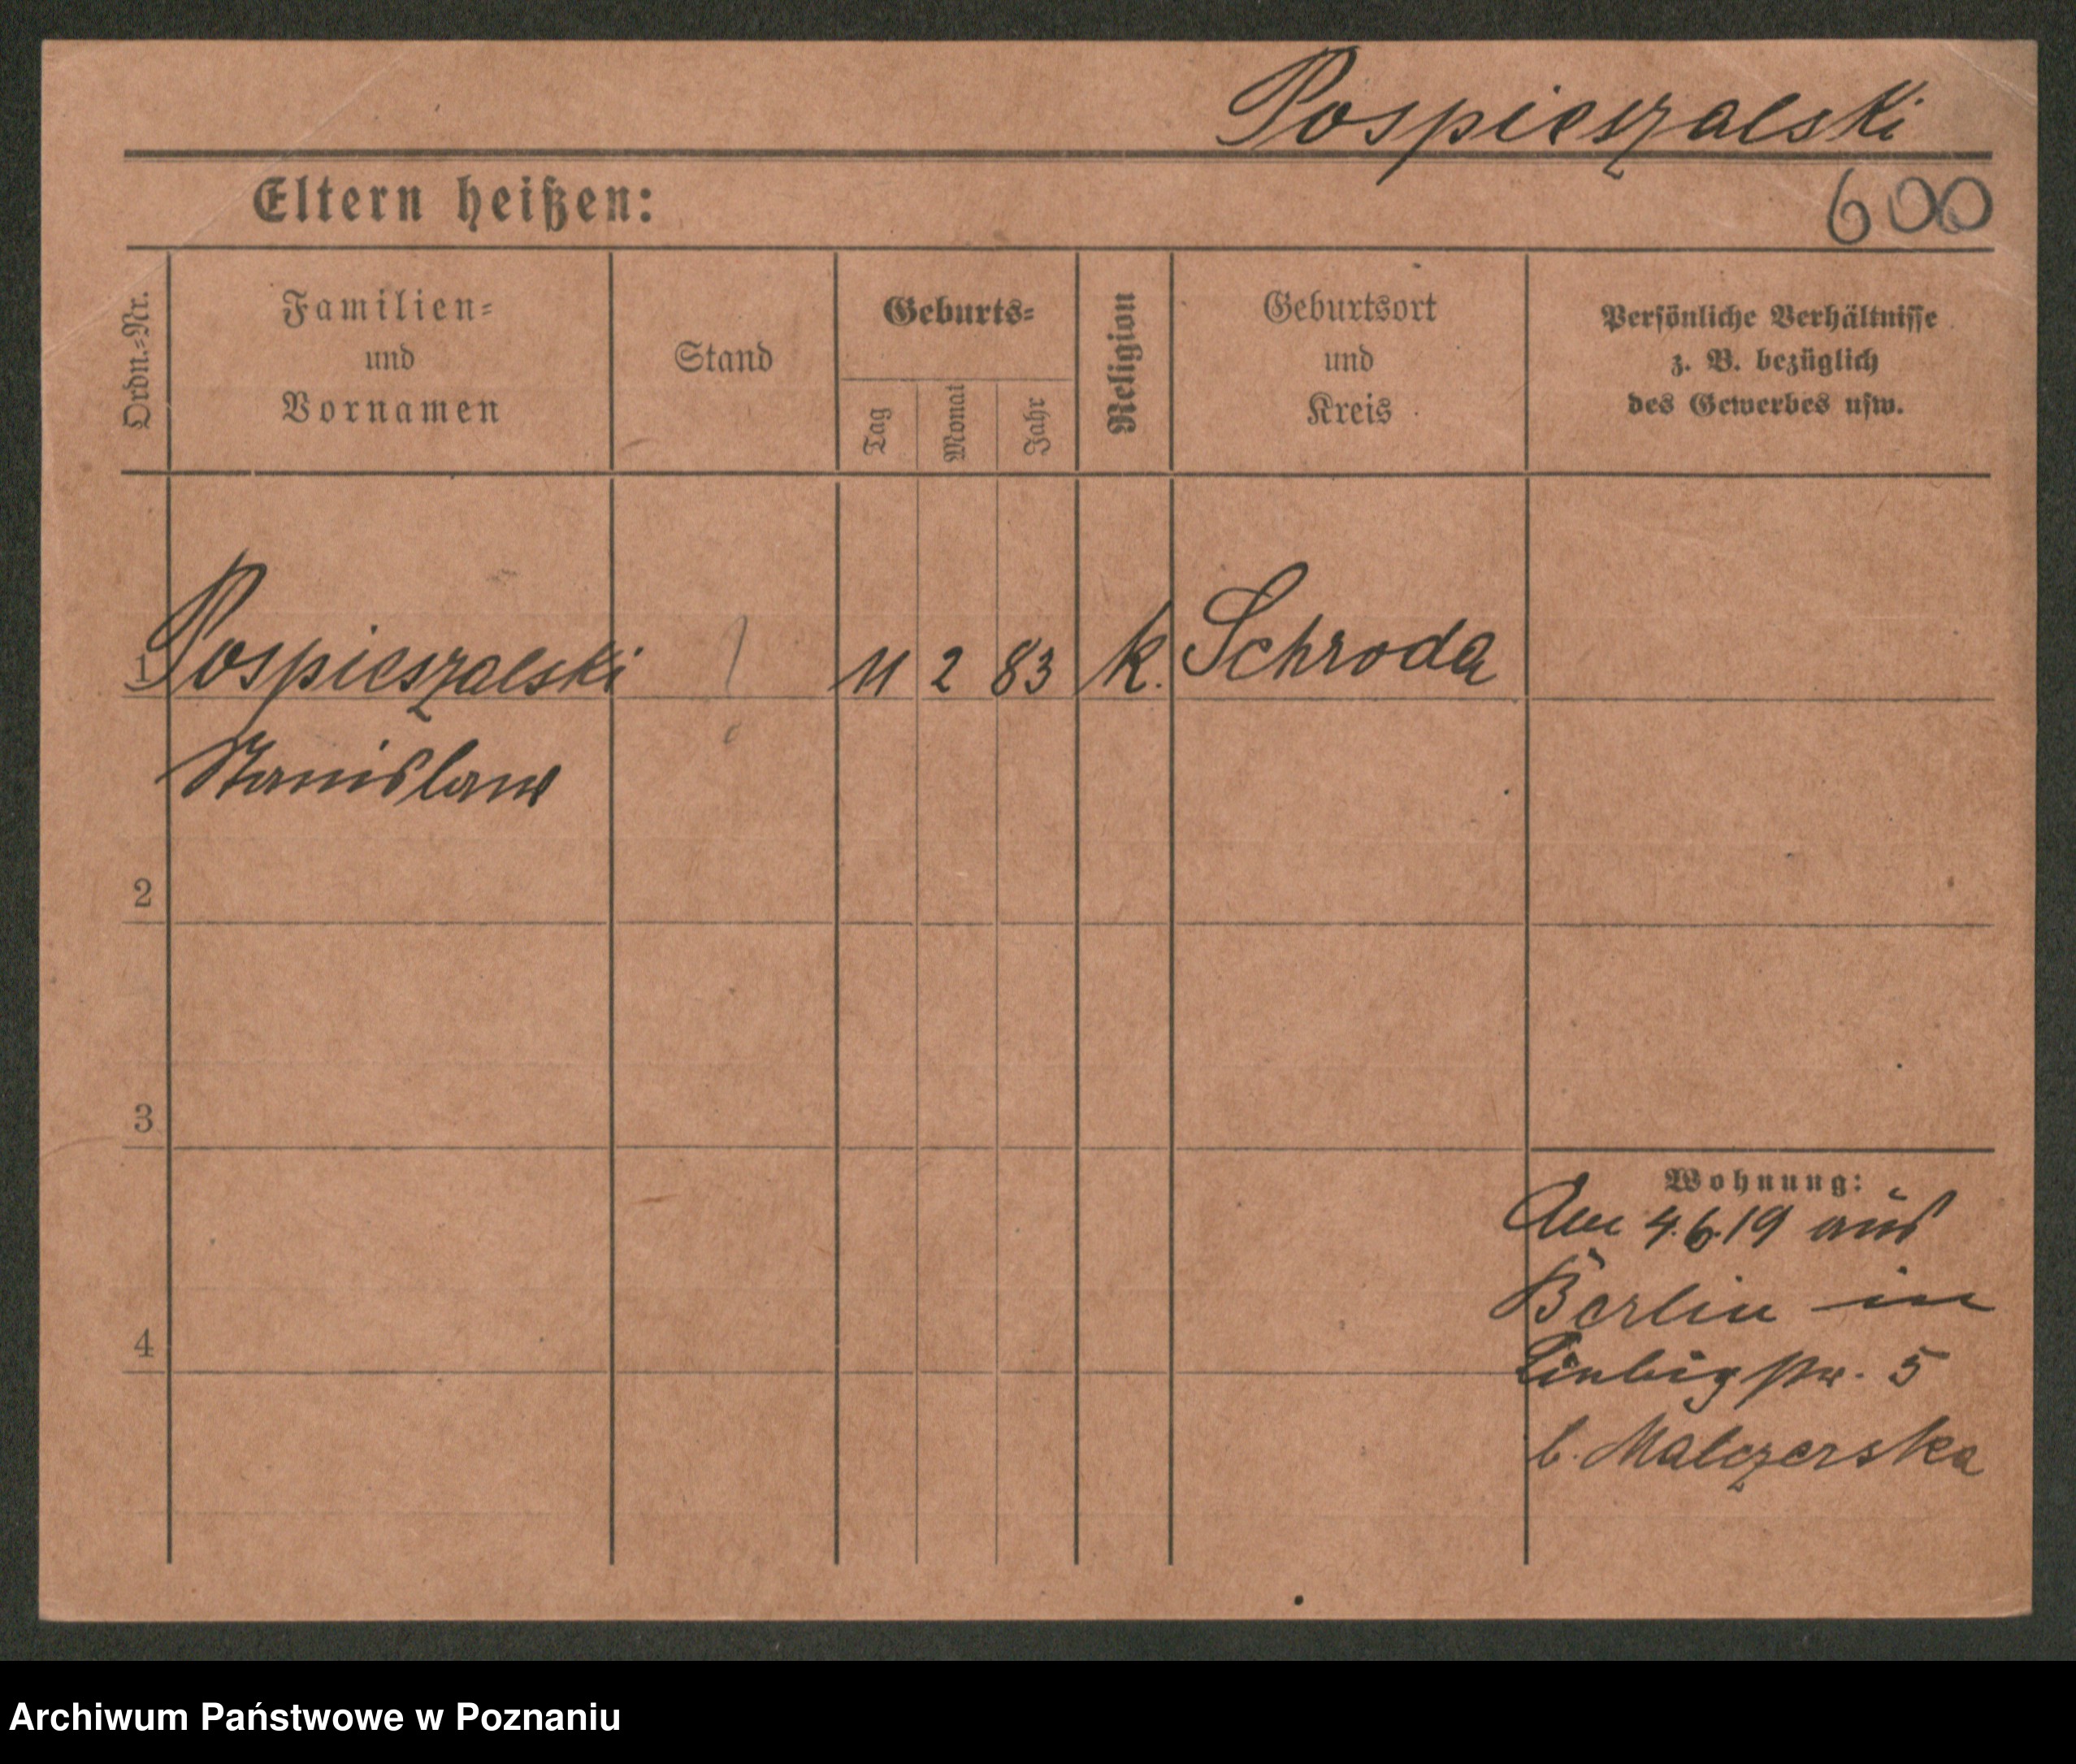 Pospieszalski
Eltern heißen:
600
Ordn.-Nr.
Familien-
und
Vornamen
Stand
Geburts-
Tag
Monat
Jahr
Religion
Geburtsort
und
Kreis
Persönliche Verhältnisse
z. B. bezüglich
des Gewerbes usw.
1 Pospieszalski ? 11 2 83 k. Schroda
Stanislaus
2
3
Wohnung:
Am 4.6.19 aus
Berlin in
4
Liebigstr. 5
b. Malczerska
Archiwum Państwowe w Poznaniu